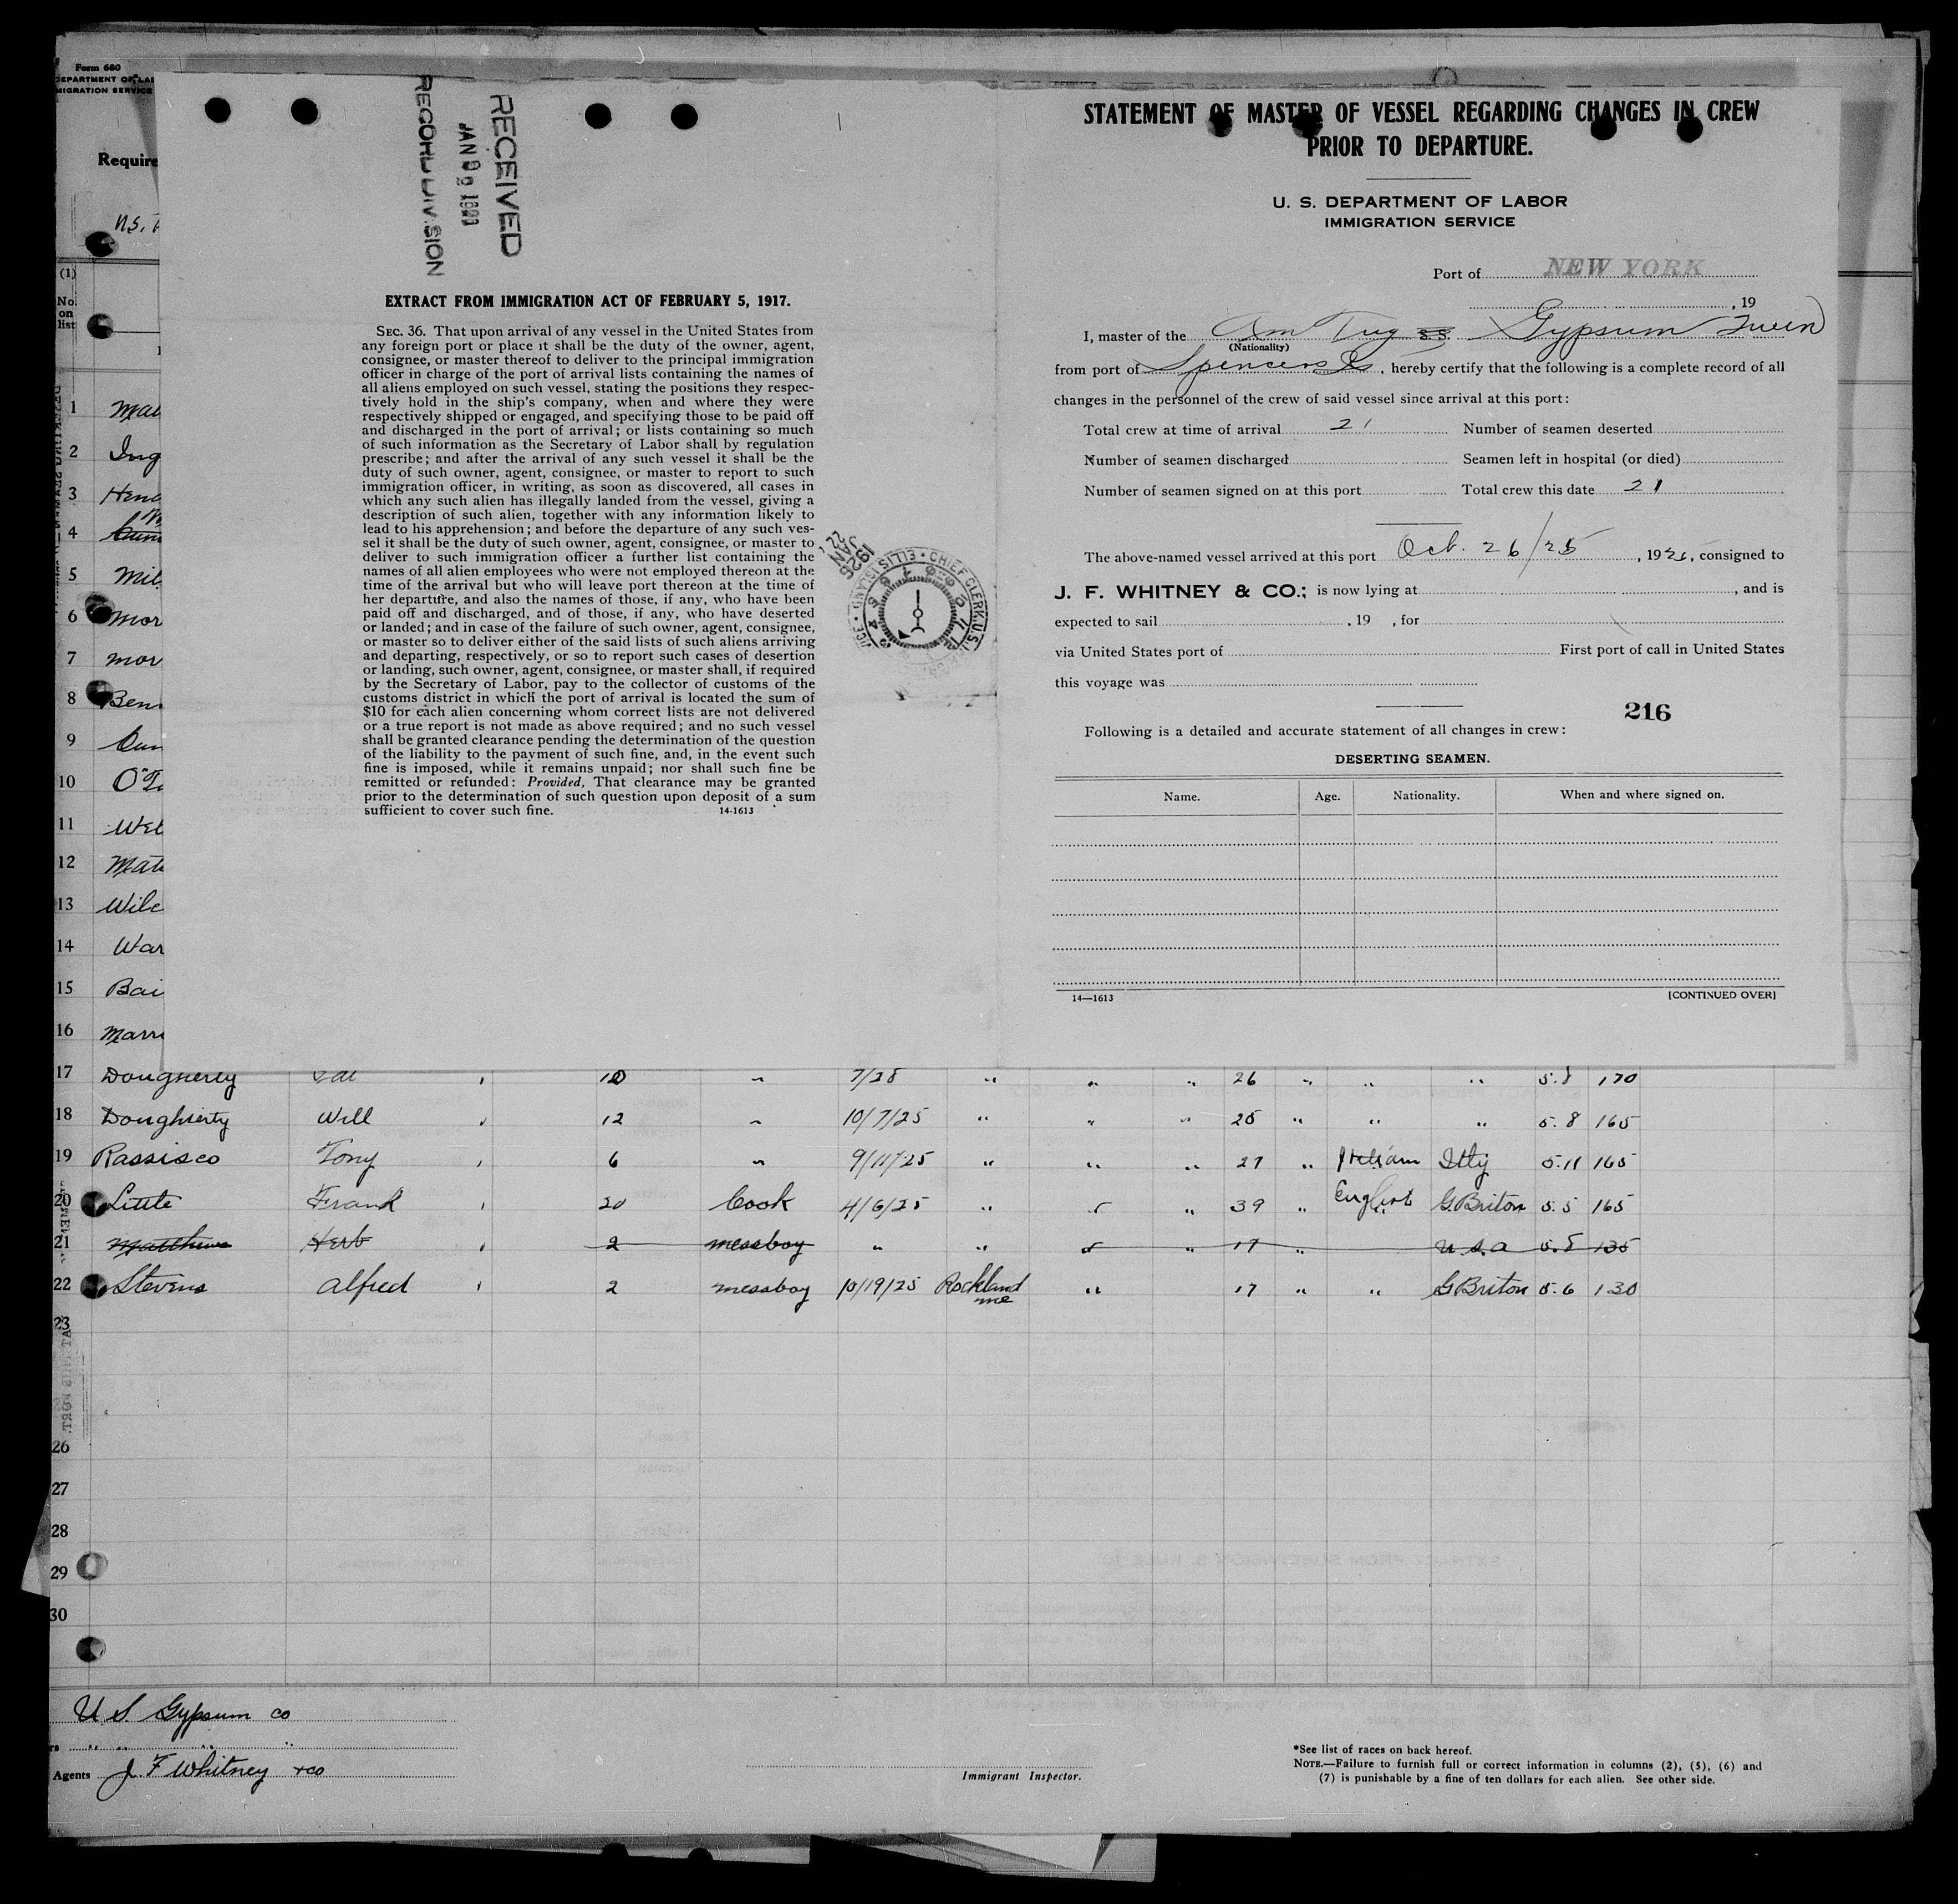 Form 680
DEPARTMENT OF LA
MIGRATION SERVICE
Require
N.S.
(1)
No.
on
list
RECEIVED
RECORD DIVISION
EXTRACT FROM IMMIGRATION ACT OF FEBRUARY 5, 1917.
SEC. 36. That upon arrival of any vessel in the United States from
any foreign port or place it shall be the duty of the owner, agent,
consignee, or master thereof to deliver to the principal immigration
officer in charge of the port of arrival lists containing the names of
all aliens employed on such vessel, stating the positions they respec-
tively hold in the ship's company, when and where they were
respectively shipped or engaged, and specifying those to be paid off
and discharged in the port of arrival; or lists containing so much
of such information as the Secretary of Labor shall by regulation
prescribe; and after the arrival of any such vessel it shall be the
duty of such owner, agent, consignee, or master to report to such
immigration officer, in writing, as soon as discovered, all cases in
which any such alien has illegally landed from the vessel, giving a
description of such alien, together with any information likely to
lead to his apprehension; and before the departure of any such ves-
sel it shall be the duty of such owner, agent, consignee, or master to
deliver to such immigration officer a further list containing the
names of all alien employees who were not employed thereon at the
time of the arrival but who will leave port thereon at the time of
her departure, and also the names of those, if any, who have been
paid off and discharged, and of those, if any, who have deserted
or landed; and in case of the failure of such owner, agent, consignee,
or master so to deliver either of the said lists of such aliens arriving
and departing, respectively, or so to report such cases of desertion
or landing, such owner, agent, consignee, or master shall, if required
by the Secretary of Labor, pay to the collector of customs of the
customs district in which the port of arrival is located the sum of
$10 for each alien concerning whom correct lists are not delivered
or a true report is not made as above required; and no such vessel
shall be granted clearance pending the determination of the question
of the liability to the payment of such fine, and, in the event such
fine is imposed, while it remains unpaid; nor shall such fine be
remitted or refunded: Provided, That clearance may be granted
prior to the determination of such question upon deposit of a sum
sufficient to cover such fine. 14-1613
STATEMENT OF MASTER OF VESSEL REGARDING CHANGES IN CREW
PRIOR TO DEPARTURE.
U. S. DEPARTMENT OF LABOR
IMMIGRATION SERVICE
Port of NEW YORK
, 19
I, master of the Am Tug S.S. Gypsum
(Nationality)
from port of Spencers Is, hereby certify that the following is a complete record of all
changes in the personnel of the crew of said vessel since arrival at this port:
Total crew at time of arrival 21 Number of seamen deserted
Number of seamen discharged Seamen left in hospital (or died)
Number of seamen signed on at this port Total crew this date 21
The above-named vessel arrived at this port Oct. 26/25, 19, consigned to
J. F. WHITNEY & CO.; is now lying at , and is
expected to sail , 19 , for
via United States port of First port of call in United States
this voyage was
216
Following is a detailed and accurate statement of all changes in crew:
DESERTING SEAMEN.
Name. Age. Nationality. When and where signed on.
14—1613 [CONTINUED OVER]
JAN 22 1926
ELLIS ISLAND CHIEF CLERK, U.S.
1 Mat
2 Ing
3 Hend
4
5 Mil
6 Mor
7 Mor
8 Benn
9 Cun
10
11 Wel
12 Mat
13 Wilc
14 War
15 Bai
16 Marr
17 Dougherty 10 " 7/28 " " " 26 " " " 5.8 170
18 Doughierty Will 12 " 10/7/25 " " " 25 " " " 5.8 165
19 Rassisco Tony 6 " 9/11/25 " " " 27 " Itelian Itly 5.11 165
20 Little Frank 20 Cook 4/6/25 " " " 39 " English G.Briton 5.5 165
21 Matthews Herb 2 messboy " " " " 17 " U.S.A 5.8 135
22 Stevens Alfred 2 messboy 10/19/25 Rockland me " 17 " " G Briton 5.6 130
23
26
27
28
29
30
U S. Gypsum co
rs " " " "
Agents J F Whitney + co
Immigrant Inspector.
*See list of races on back hereof.
NOTE.—Failure to furnish full or correct information in columns (2), (5), (6) and
(7) is punishable by a fine of ten dollars for each alien. See other side.